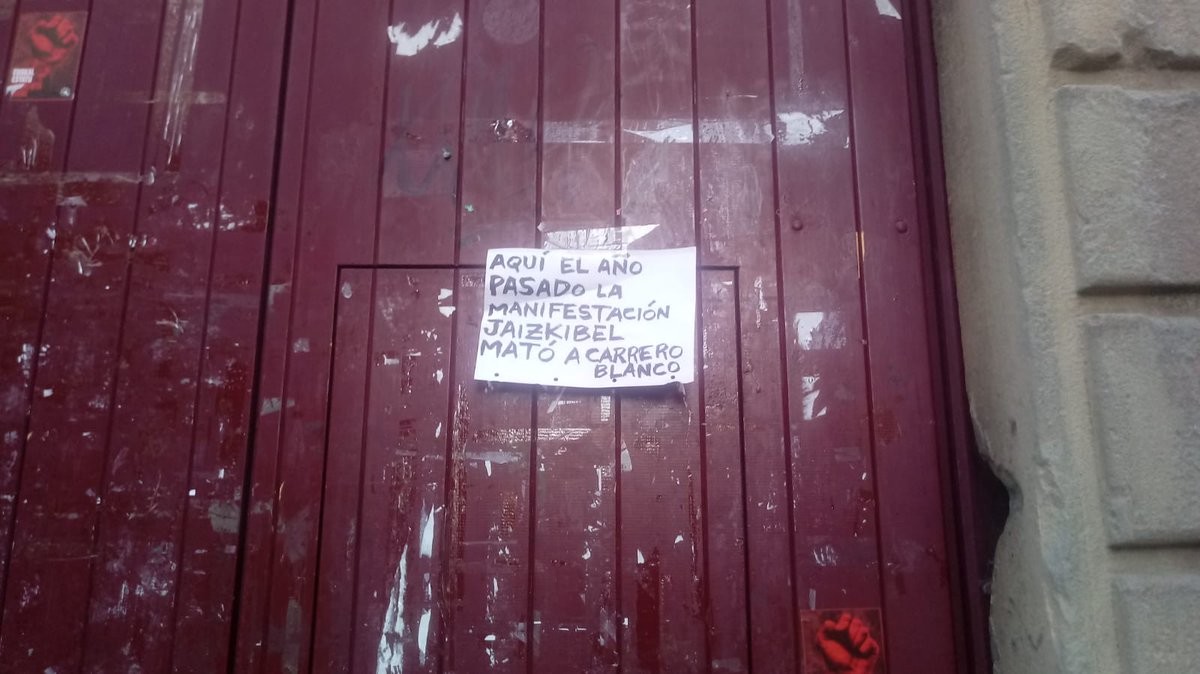 AQUÍ EL AÑO
PASADO LA
MANIFESTACIÓN
JAIZKIBEL
MATÓ A CARRERO
BLANCO